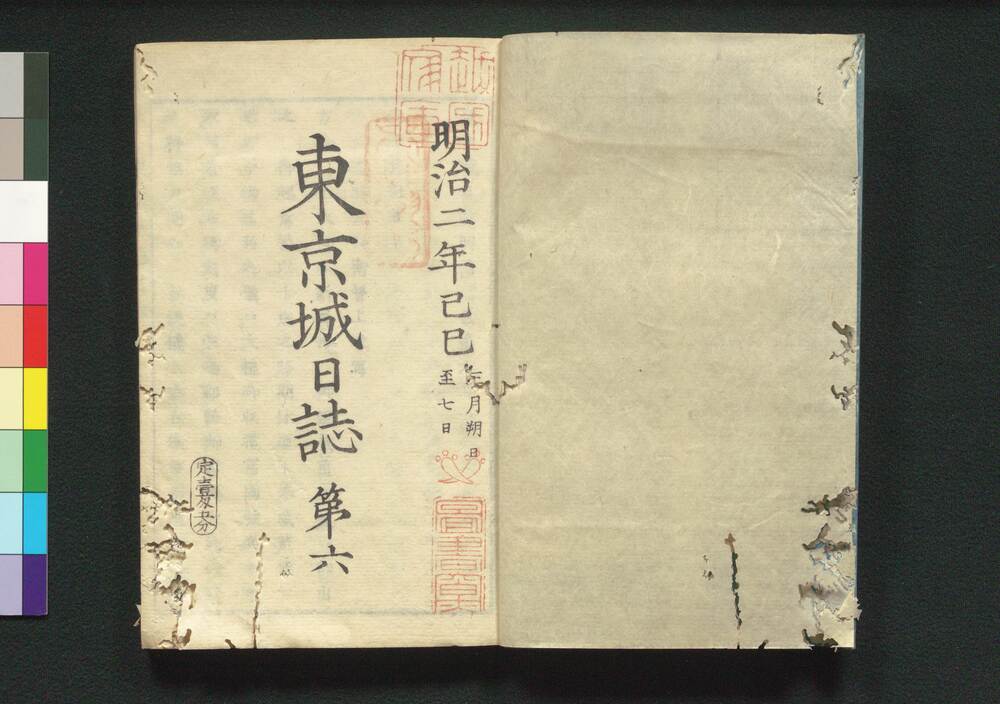 明治二年己巳
月朔日
至七日
東京城日誌 第六
定壹匁五分
圖書